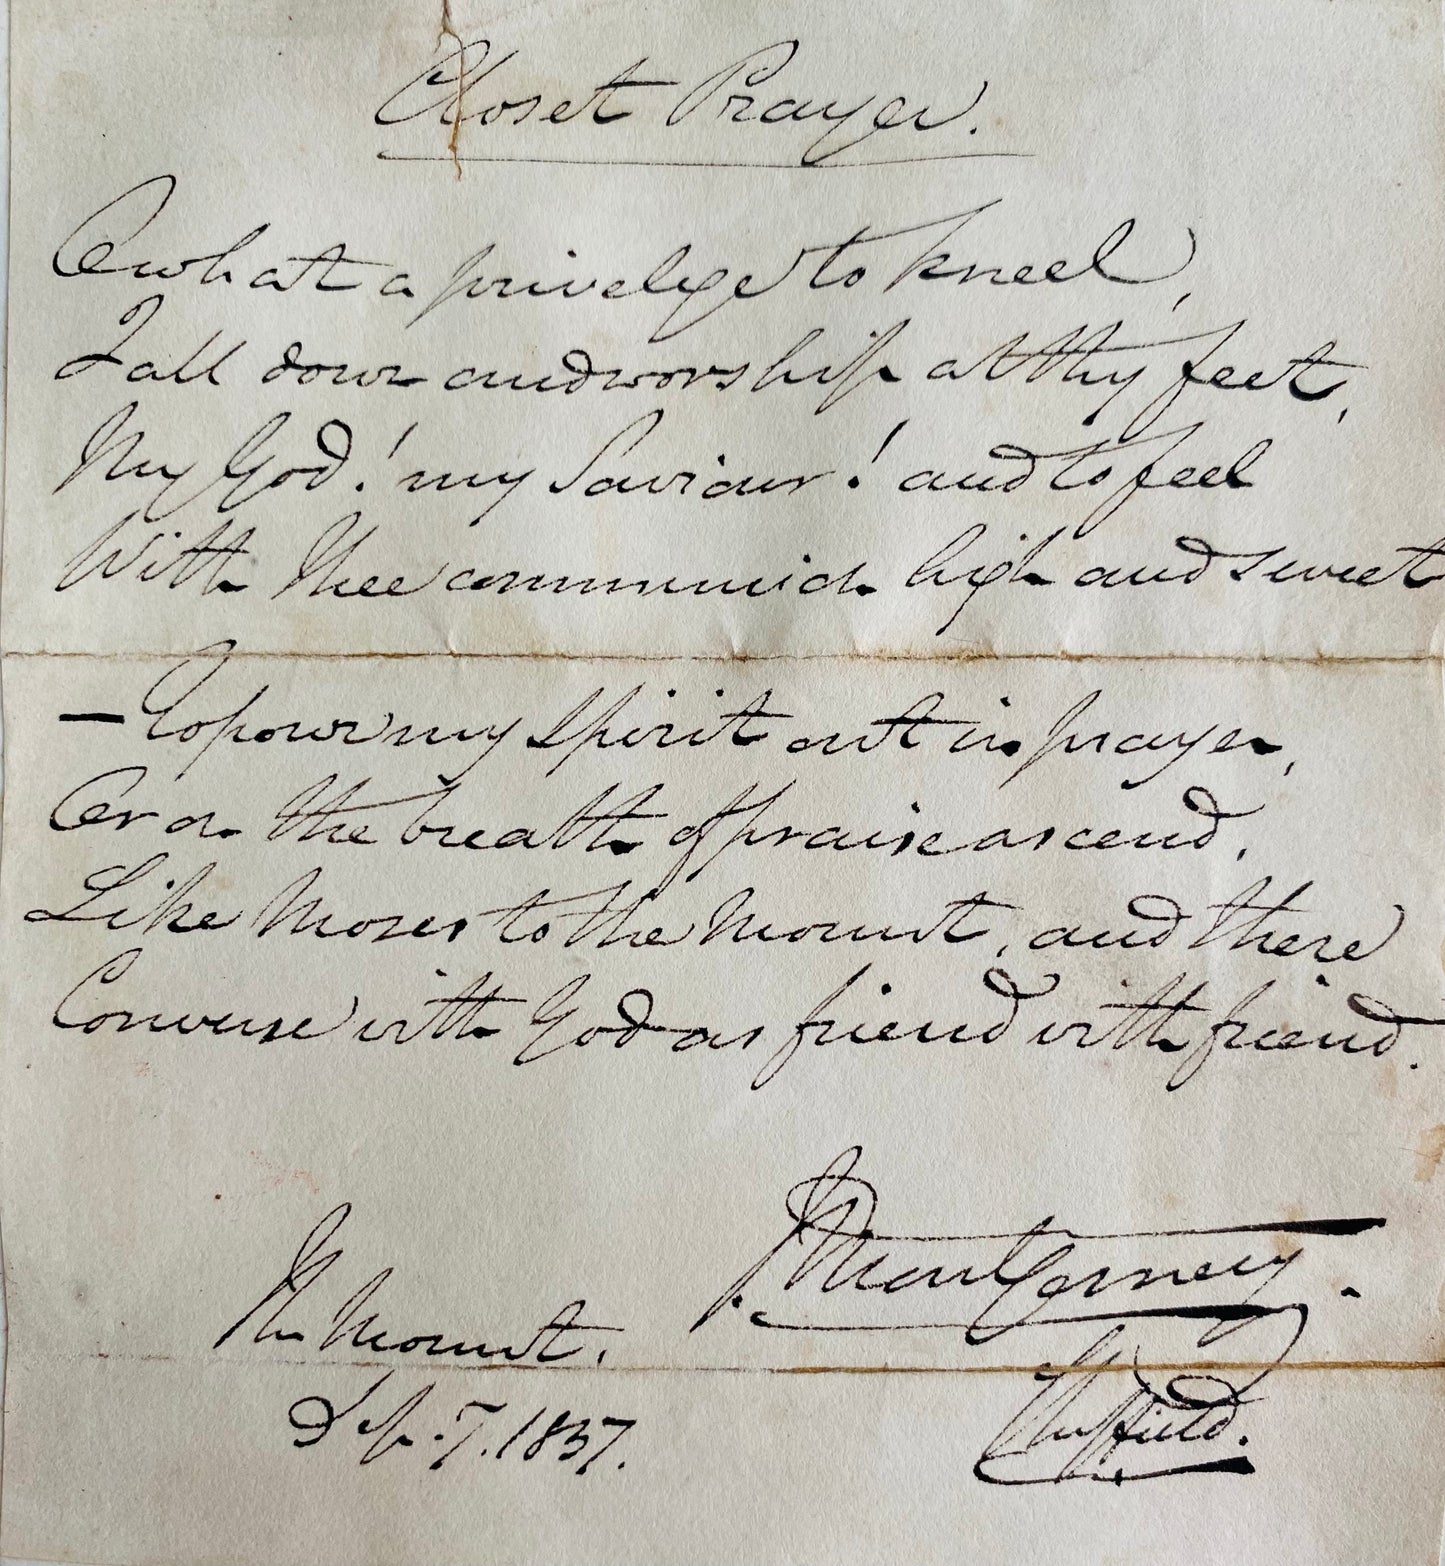 Closet Prayer.
O what a privelege to kneel,
Fall down and worship at thy feet,
My God! my Saviour! and to feel
With Thee communion high and sweet
— To pour my spirit out in prayer,
Or on the breath of praise ascend,
Like Moses to the Mount, and there
Converse with God as friend with friend.
J. Montgomery.
The Mount,
Sheffield.
Sep. 7. 1837.